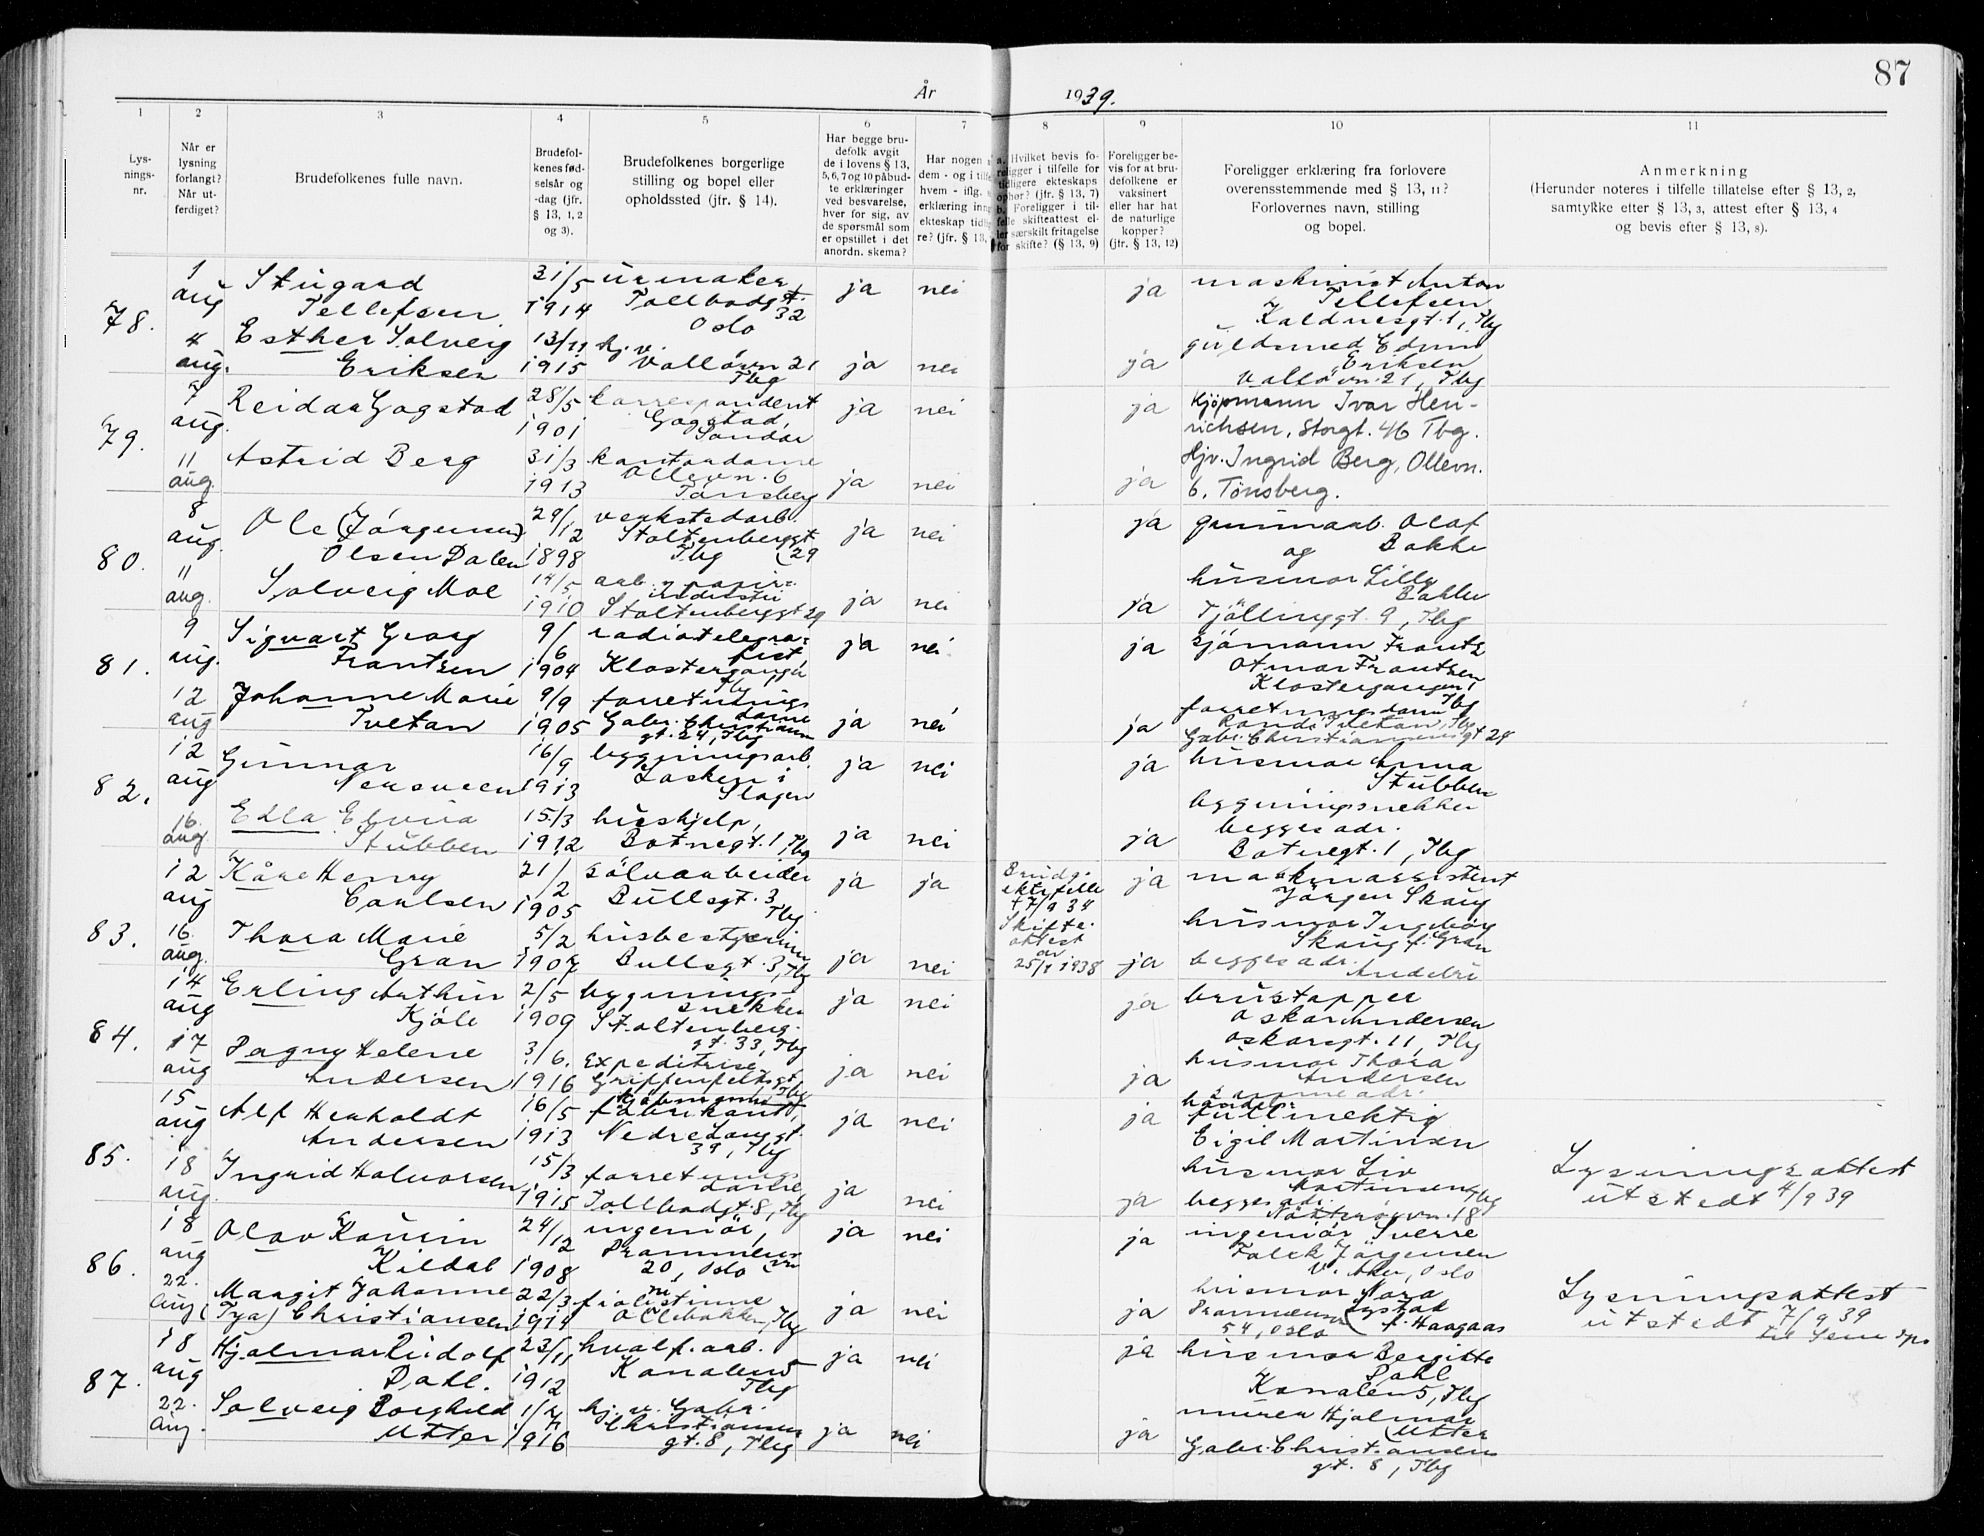 87
År 1939.
1 2 3 4 5 6 7 8 9 10 11
Lys-
nings-
nr.
Når er
lysning
forlangt?
Når ut-
ferdiget?
Brudefolkenes fulle navn.
Brudefol-
kenes fød-
selsår og
-dag (jfr.
§ 13, 1, 2
og 3).
Brudefolkenes borgerlige
stilling og bopel eller
opholdssted (jfr. § 14).
Har begge bru-
defolk avgit
de i lovens § 13,
5, 6, 7 og 10 påbud-
te erklæringer
ved besvarelse,
hver for sig, av
de spørsmål som
er opstillet i det
anordn. skema?
Har nogen
dem - og i tilf
hvem - iflg.
erklæring inng
ekteskap tidlig
re? (jfr. § 13,
a. Hvilket bevis fo-
religger i tilfelle for
tidligere ekteskaps
ophør? (jfr. § 13, 7)
b. Foreligger i til-
felle skifteattest el-
ler særskilt fritagelse
for skifte? (§ 13, 9)
Foreligger be-
vis for at bru-
defolkene er
vaksinert
eller har hat
de naturlige
kopper?
(jfr. § 13, 12)
Foreligger erklæring fra forlovere
overensstemmende med § 13, 11?
Forlovernes navn, stilling
og bopel.
Anmerkning
(Herunder noteres i tilfelle tillatelse efter § 13, 2,
samtykke efter § 13, 3, attest efter § 13, 4
og bevis efter § 13, 8).
78.
1 aug
Stugard
Tellefsen
31/5
1914
urmaker
Tollbodgt.
32
Oslo
ja nei ja
maskinist Anton
Tellefsen
Kaldnesgt. 1, Tbg
4 aug.
Esther Solveig
Eriksen
13/11
1915
hj. v.
Valløvn 21
Tbg
ja nei ja
gullsmed Edvin
Eriksen
Valløvn. 21, Tbg
79.
7 aug.
Reidar Gogstad
28/5
1901
korrespondent
Gogstad,
Sandar
ja nei ja
Kjøpmann Ivar Hen-
richsen, Storgt. 46 Tbg.
11 aug.
Astrid Berg
31/3
1913
kontordame
Ollevn. 6
Tønsberg
ja nei ja
Hjv. Ingrid Berg, Ollevn.
6, Tønsberg.
80.
8 aug.
Ole (Jørgensen)
Olsen Dalen
29/12
1898
verkstedarb.
Stoltenberggt
Tbg (29
ja nei ja
gruvearb. Olaf
og Bakke
11 aug.
Solveig Moe
14/5
1910
arb. papir-
industri
Stoltenberggt 29
ja nei ja
husmor Lilly
Bakke
Tjøllinggt. 9, Tbg
81.
9 aug.
Sigvart Georg
Frantzen
9/6
1904
radiotelegra-
fist,
Klostergangen
Tbg
ja nei ja
sjömann Frantz
Otmar Frantzen
Klostergangen,
Tbg
12 aug
Johanne Marie
Tvetan
9/9
1905
forretnings
dame
Gabr. Christiansens
gt. 24, Tbg
ja nei ja
forretningsdame
Randi Tvetan, Tbg
Gabr. Christiansensgt 24
82.
12 aug
Gunnar
16/9
1913
bygningsarb.
Slagen
ja nei ja
husmor Anna
Stubben
16. aug
Edla Elvira
Stubben
15/3
1912
hushjelp,
Botnegt. 1, Tbg
ja nei ja
bygningsnekker
begges adr.
Botnegt. 1, Tbg
83.
12 aug
Kåre Henry
Carlsen
21/2
1905
sölvarbeider
Bullsgt. 3
Tbg.
ja ja
Brudg.
ektefelle
† 7/9 34
Skifte-
attest
av
25/1 1938
ja
maskinassistent
Jørgen Skaug
16. aug.
Thora Marie
Gran
5/2
1907
husbestyrerinne
Bullsgt. 3, Tbg
ja nei ja
husmor Ingeborg
Skaug f. Gran
begges adr.
Andebu
84.
14 aug
Erling Arthur
Kjöle
2/5
1909
bygnings-
snekker
Stoltenberg-
gt. 33, Tbg
ja nei ja
brustapper
Oskar Andersen
Oskarsgt. 11, Tbg
17 aug
Dagny Helene
Andersen
3/6.
1916
Expeditrise,
Griffenfeltsgt,
Tbg
ja nei ja
husmor Thora
Andersen
samme adr.
85.
15 aug
Alf Henholdt
Andersen
16/5
1913
fabrikant,
Nedre Langgt.
39, Tbg
ja nei ja
handels-
fullmektig
Eigil Martinsen
18 aug.
Ingrid Halvorsen
15/3
1915
forretnings
dame,
Tollbodgt. 8, Tbg
ja nei ja
husmor Liv
Martinsen, Tbg
begges adr.
Nötterøyvn. 18
Lysningsattest
utstedt 4/9 39
86.
18 aug
Olav Kaurin
Kildal
24/12
1908
ingeniör,
Drammens
20, Oslo vn
ja nei ja
ingeniör Sverre
Falck Jörgensen
V. Aker, Oslo
22. aug
Margit Johanne
(Tya) Christiansen
22/3
1914
fiolinistinne
Ollebakken, Tbg
ja nei ja
husmor Nora
Drammensvn Lystad
54, Oslo f. Haagaas
Lysningsattest
utstedt 7/9 39
til Sem spr.
87.
18 aug
Hjalmar Rudolf
Dahl.
23/11
1912
hvalf. arb.
Kanalen 5
Tbg
ja nei ja
husmor Bergitte
Dahl
Kanalen 5, Tbg
22. aug.
Solveig Borghild
Utter
1916
hj. v. Gabr.
Christiansens
gt. 8, Tbg
ja nei ja
murer Hjalmar
Utter
Gabr. Christiansens
gt. 8, Tbg